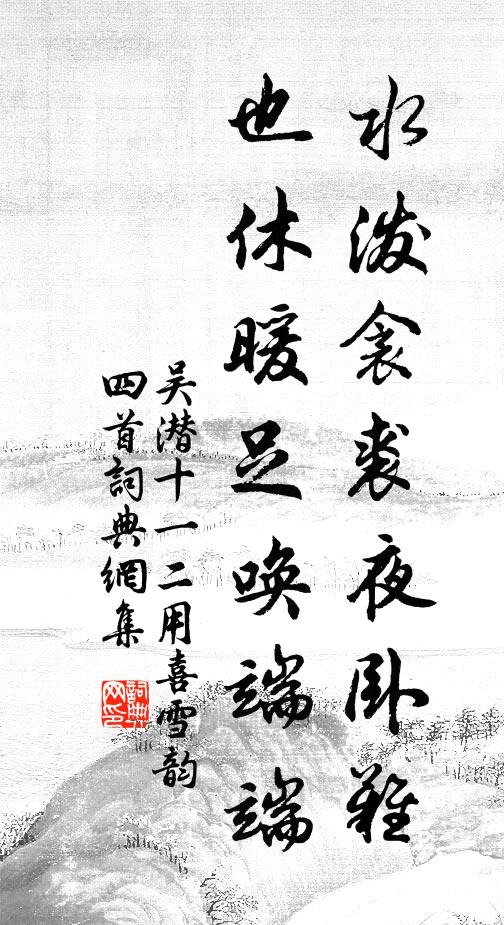 水泼衾裘夜卧難
也休暖足喚端端
吴潜十一二用喜雪韵
四首詞典網集
詞典网印